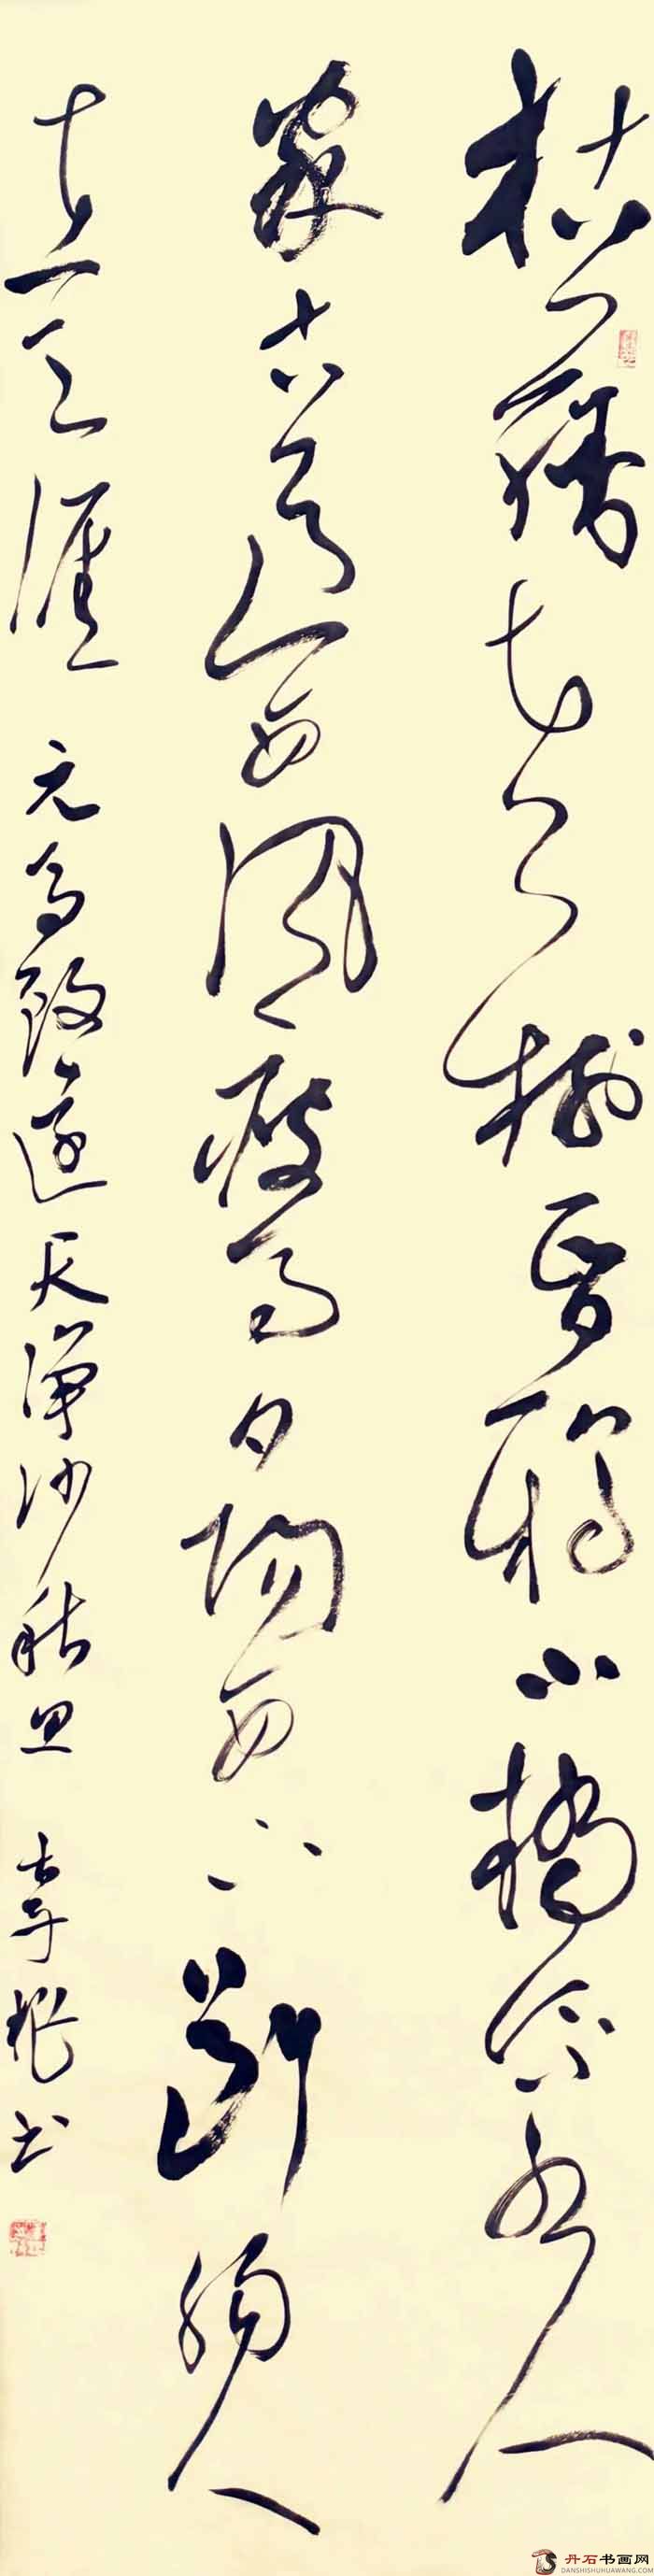 枯藤老树昏鸦小桥流水人
家古道西风瘦马夕阳西下断肠人
在天涯 元马致远天净沙秋思 李 书
丹石书画网
DANSHISHUHUAWANG.COM